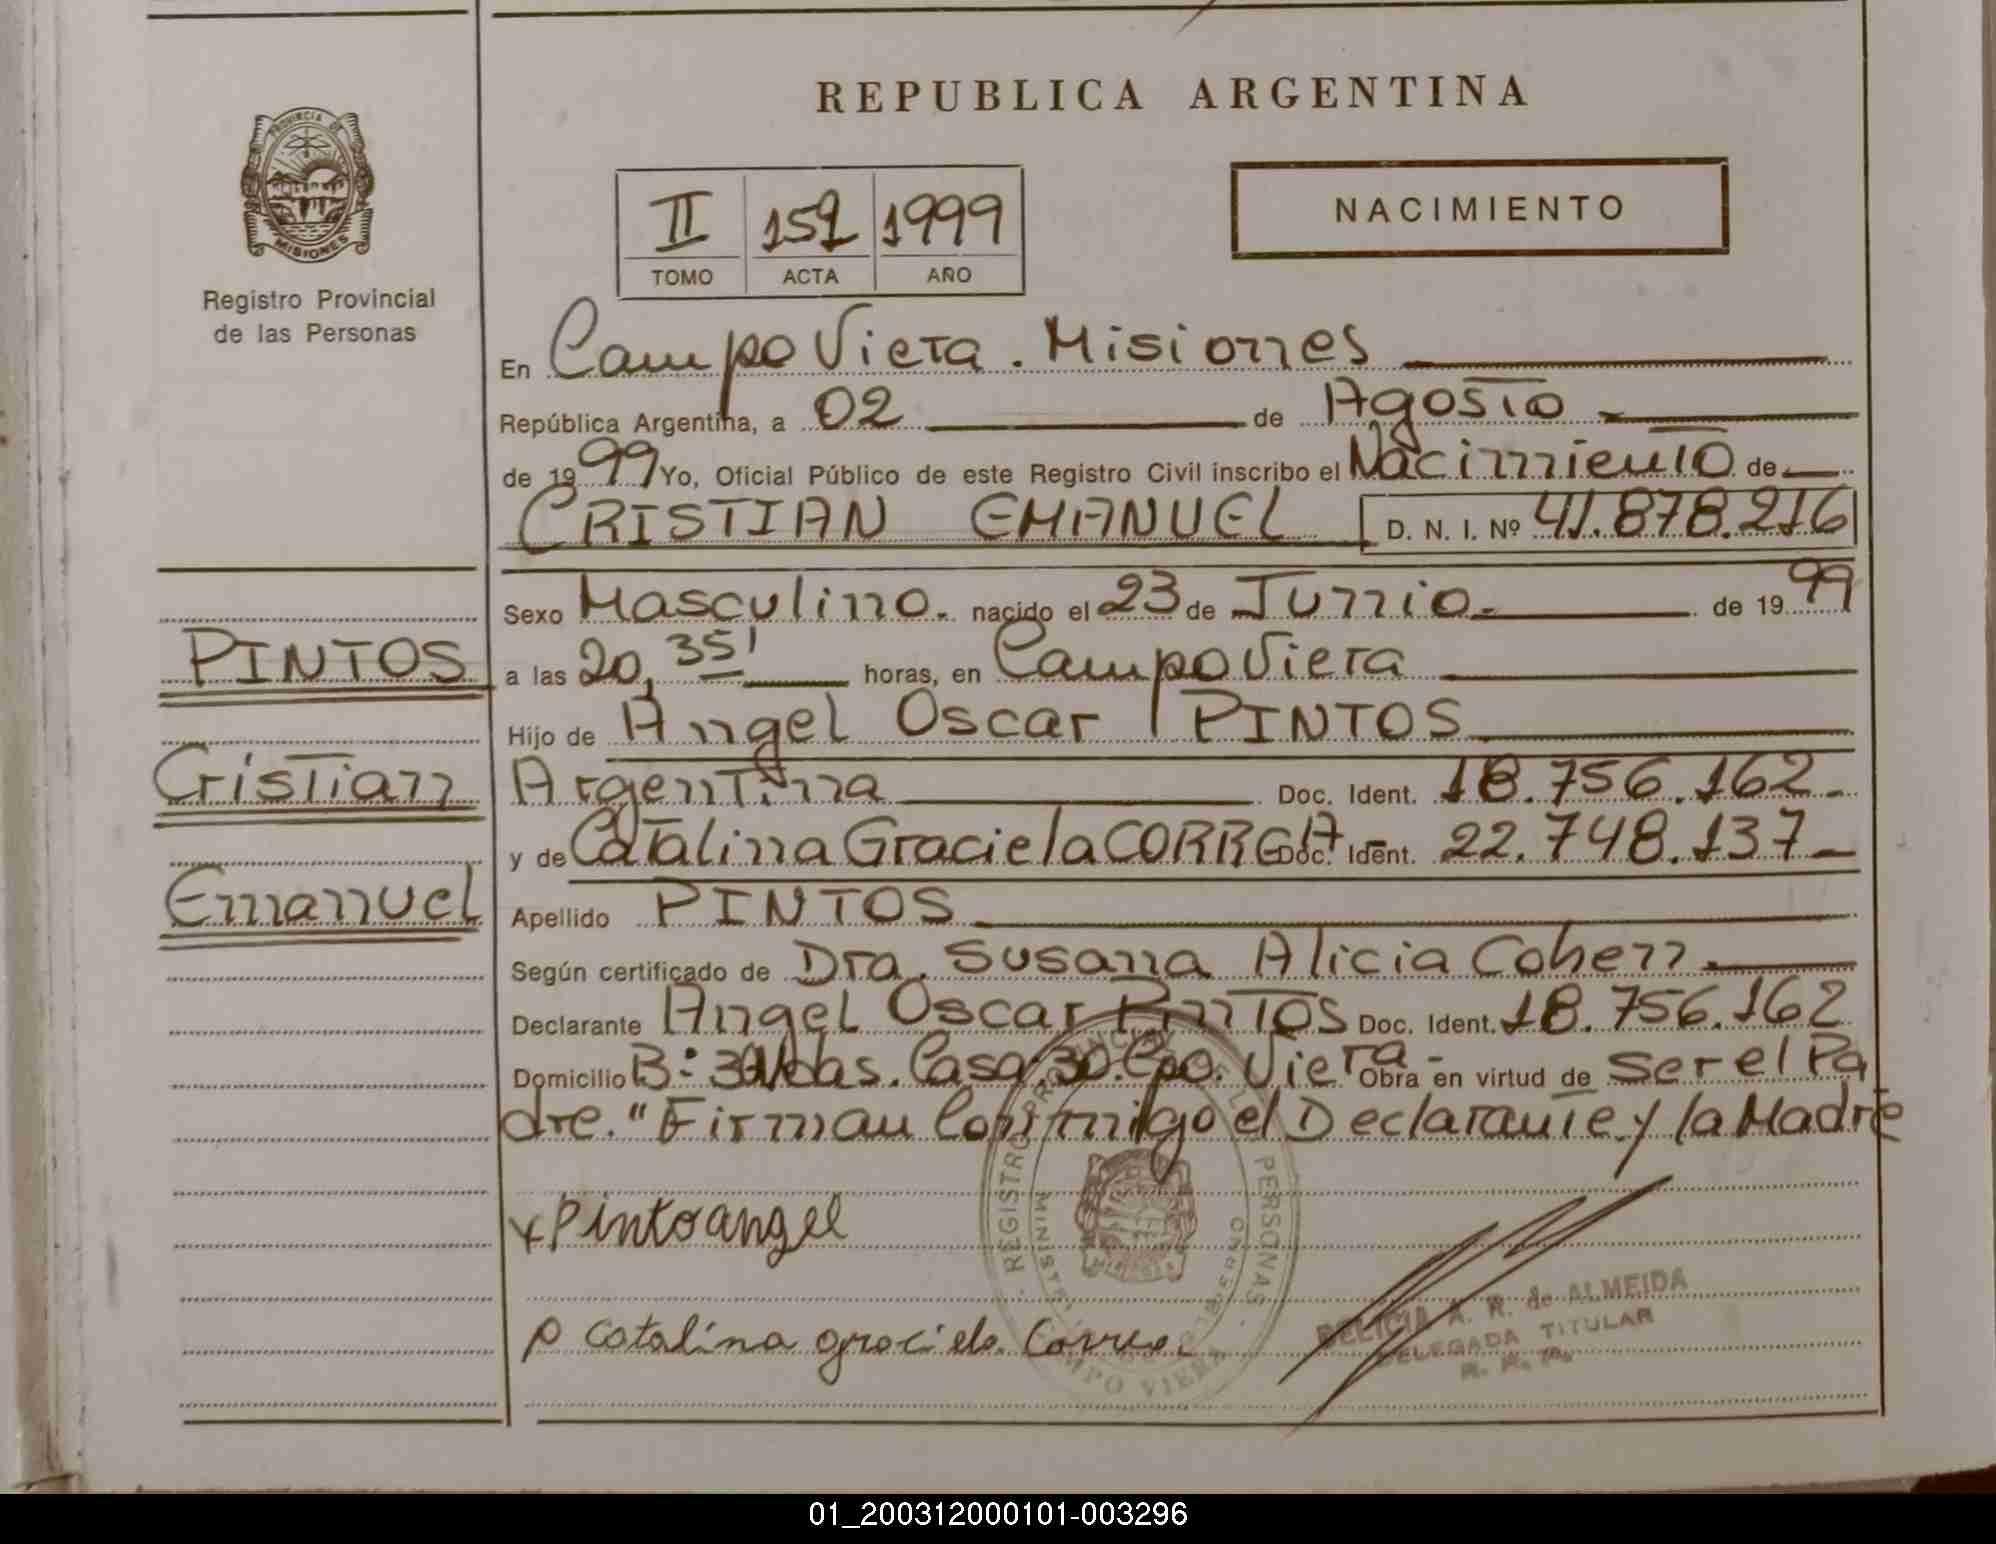 REPUBLICA ARGENTINA
PROVINCIA DE
MISIONES
Registro Provincial
de las Personas
II 159 1999
TOMO ACTA AÑO
NACIMIENTO
En Campo Viera. Misiones
República Argentina, a 02 de Agosto
de 1999 Yo, Oficial Público de este Registro Civil inscribo el Nacimiento de
CRISTIAN EMANUEL D. N. I. Nº 41.878.216
Sexo Masculino. nacido el 23 de Junio. de 1999
PINTOS
a las 20,35' horas, en Campo Viera
Hijo de Angel Oscar PINTOS
Cristian
Argentina Doc. Ident. 18.756.162
y de Catalina Graciela CORREA Doc. Ident. 22.748.137
Emanuel
Apellido PINTOS
Según certificado de Dra. Susana Alicia Cohen.
Declarante Angel Oscar Pintos Doc. Ident. 18.756.162
Domicilio B: Vdas. Casa 30. Cpo. Viera Obra en virtud de ser el Pa
dre. "Firman Conmigo el Declarante y la Madre
x Pinto angel
p Catalina graciela Correa
REGISTRO PROVINCIAL DE LAS PERSONAS
CAMPO VIERA
FELICIA A. R. de ALMEIDA
DELEGADA TITULAR
01_200312000101-003296